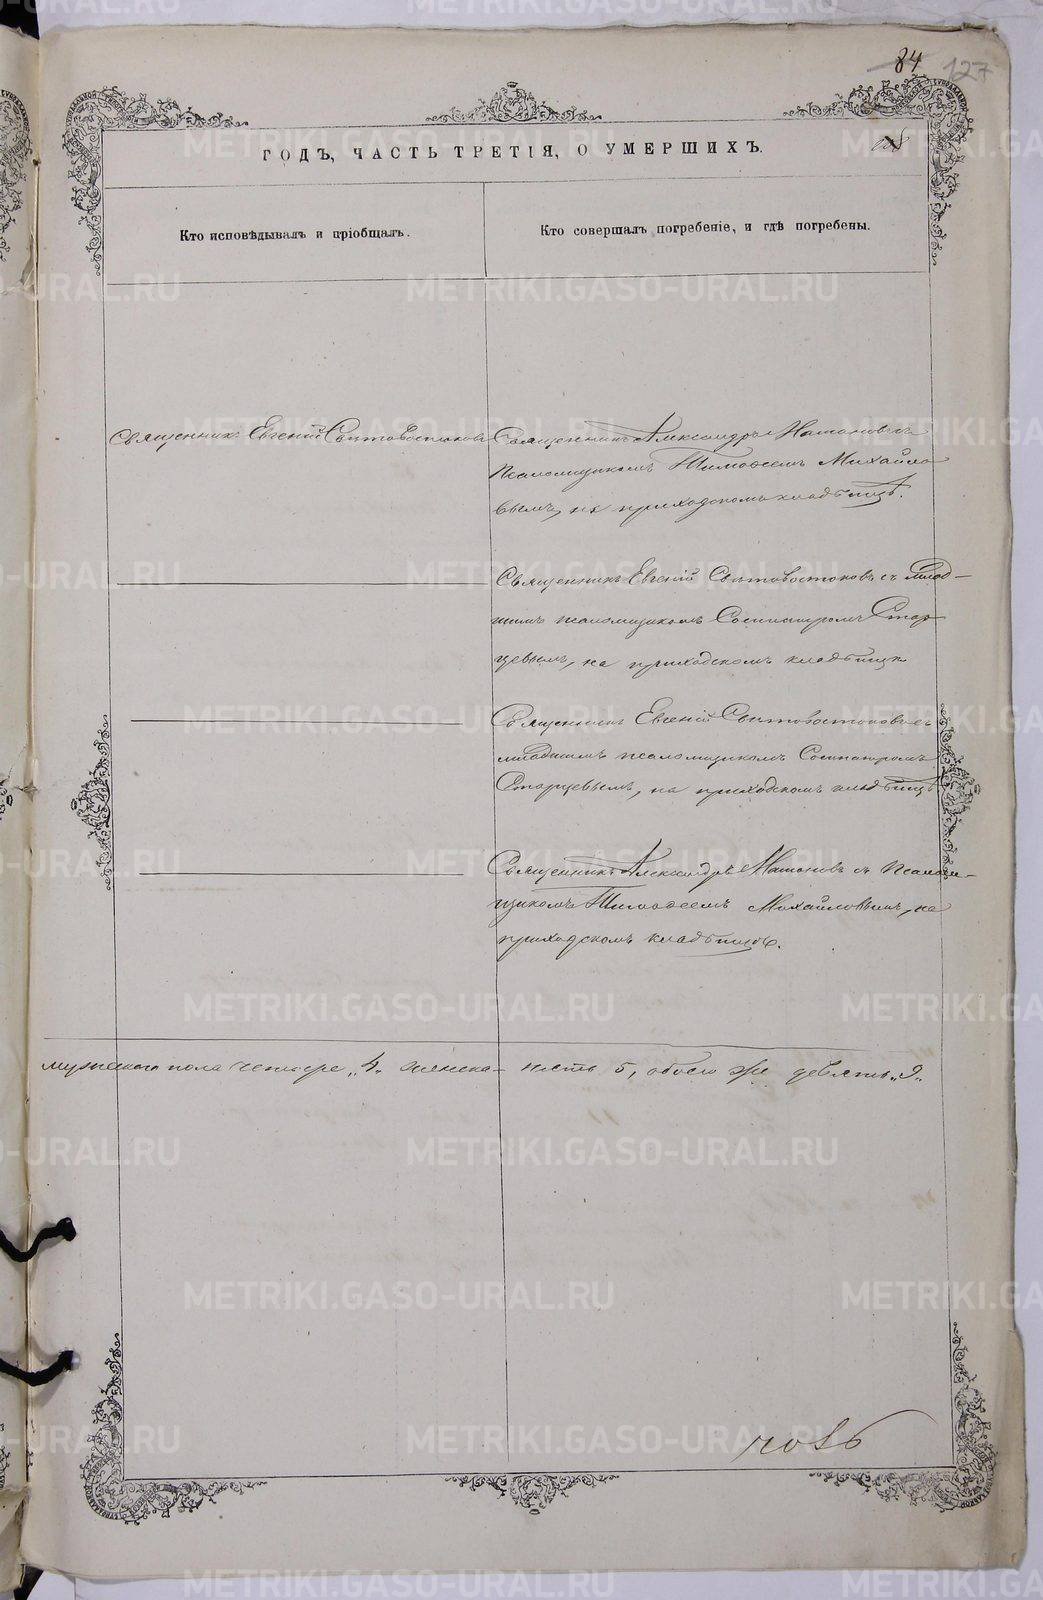 84 127
ГОДЪ, ЧАСТЬ ТРЕТІЯ, О УМЕРШИХЪ.
Кто исповѣдывалъ и пріобщалъ.
Кто совершалъ погребеніе, и гдѣ погребены.
Священникъ Евгеній Свѣтовостоковъ
Священникъ Александръ Матановъ съ
Псаломщикомъ Тимофеемъ Михайло
вымъ, на приходскомъ кладбищѣ.
Священникъ Евгеній Свѣтовостоковъ съ млад-
шимъ псаломщикомъ Сосипатромъ Стар
цевымъ, на приходскомъ кладбищѣ
Священникъ Евгеній Свѣтовостоковъ съ
младшимъ псаломщикомъ Сосипатромъ
Старцевымъ, на приходскомъ кладбищѣ
Священникъ Александръ Матановъ съ Псалом-
щикомъ Тимофеемъ Михайловымъ, на
приходскомъ кладбищѣ.
мужескаго пола четыре „4„ женска- пять 5, обоего же девять „9„
METRIKI.GASO-URAL.RU